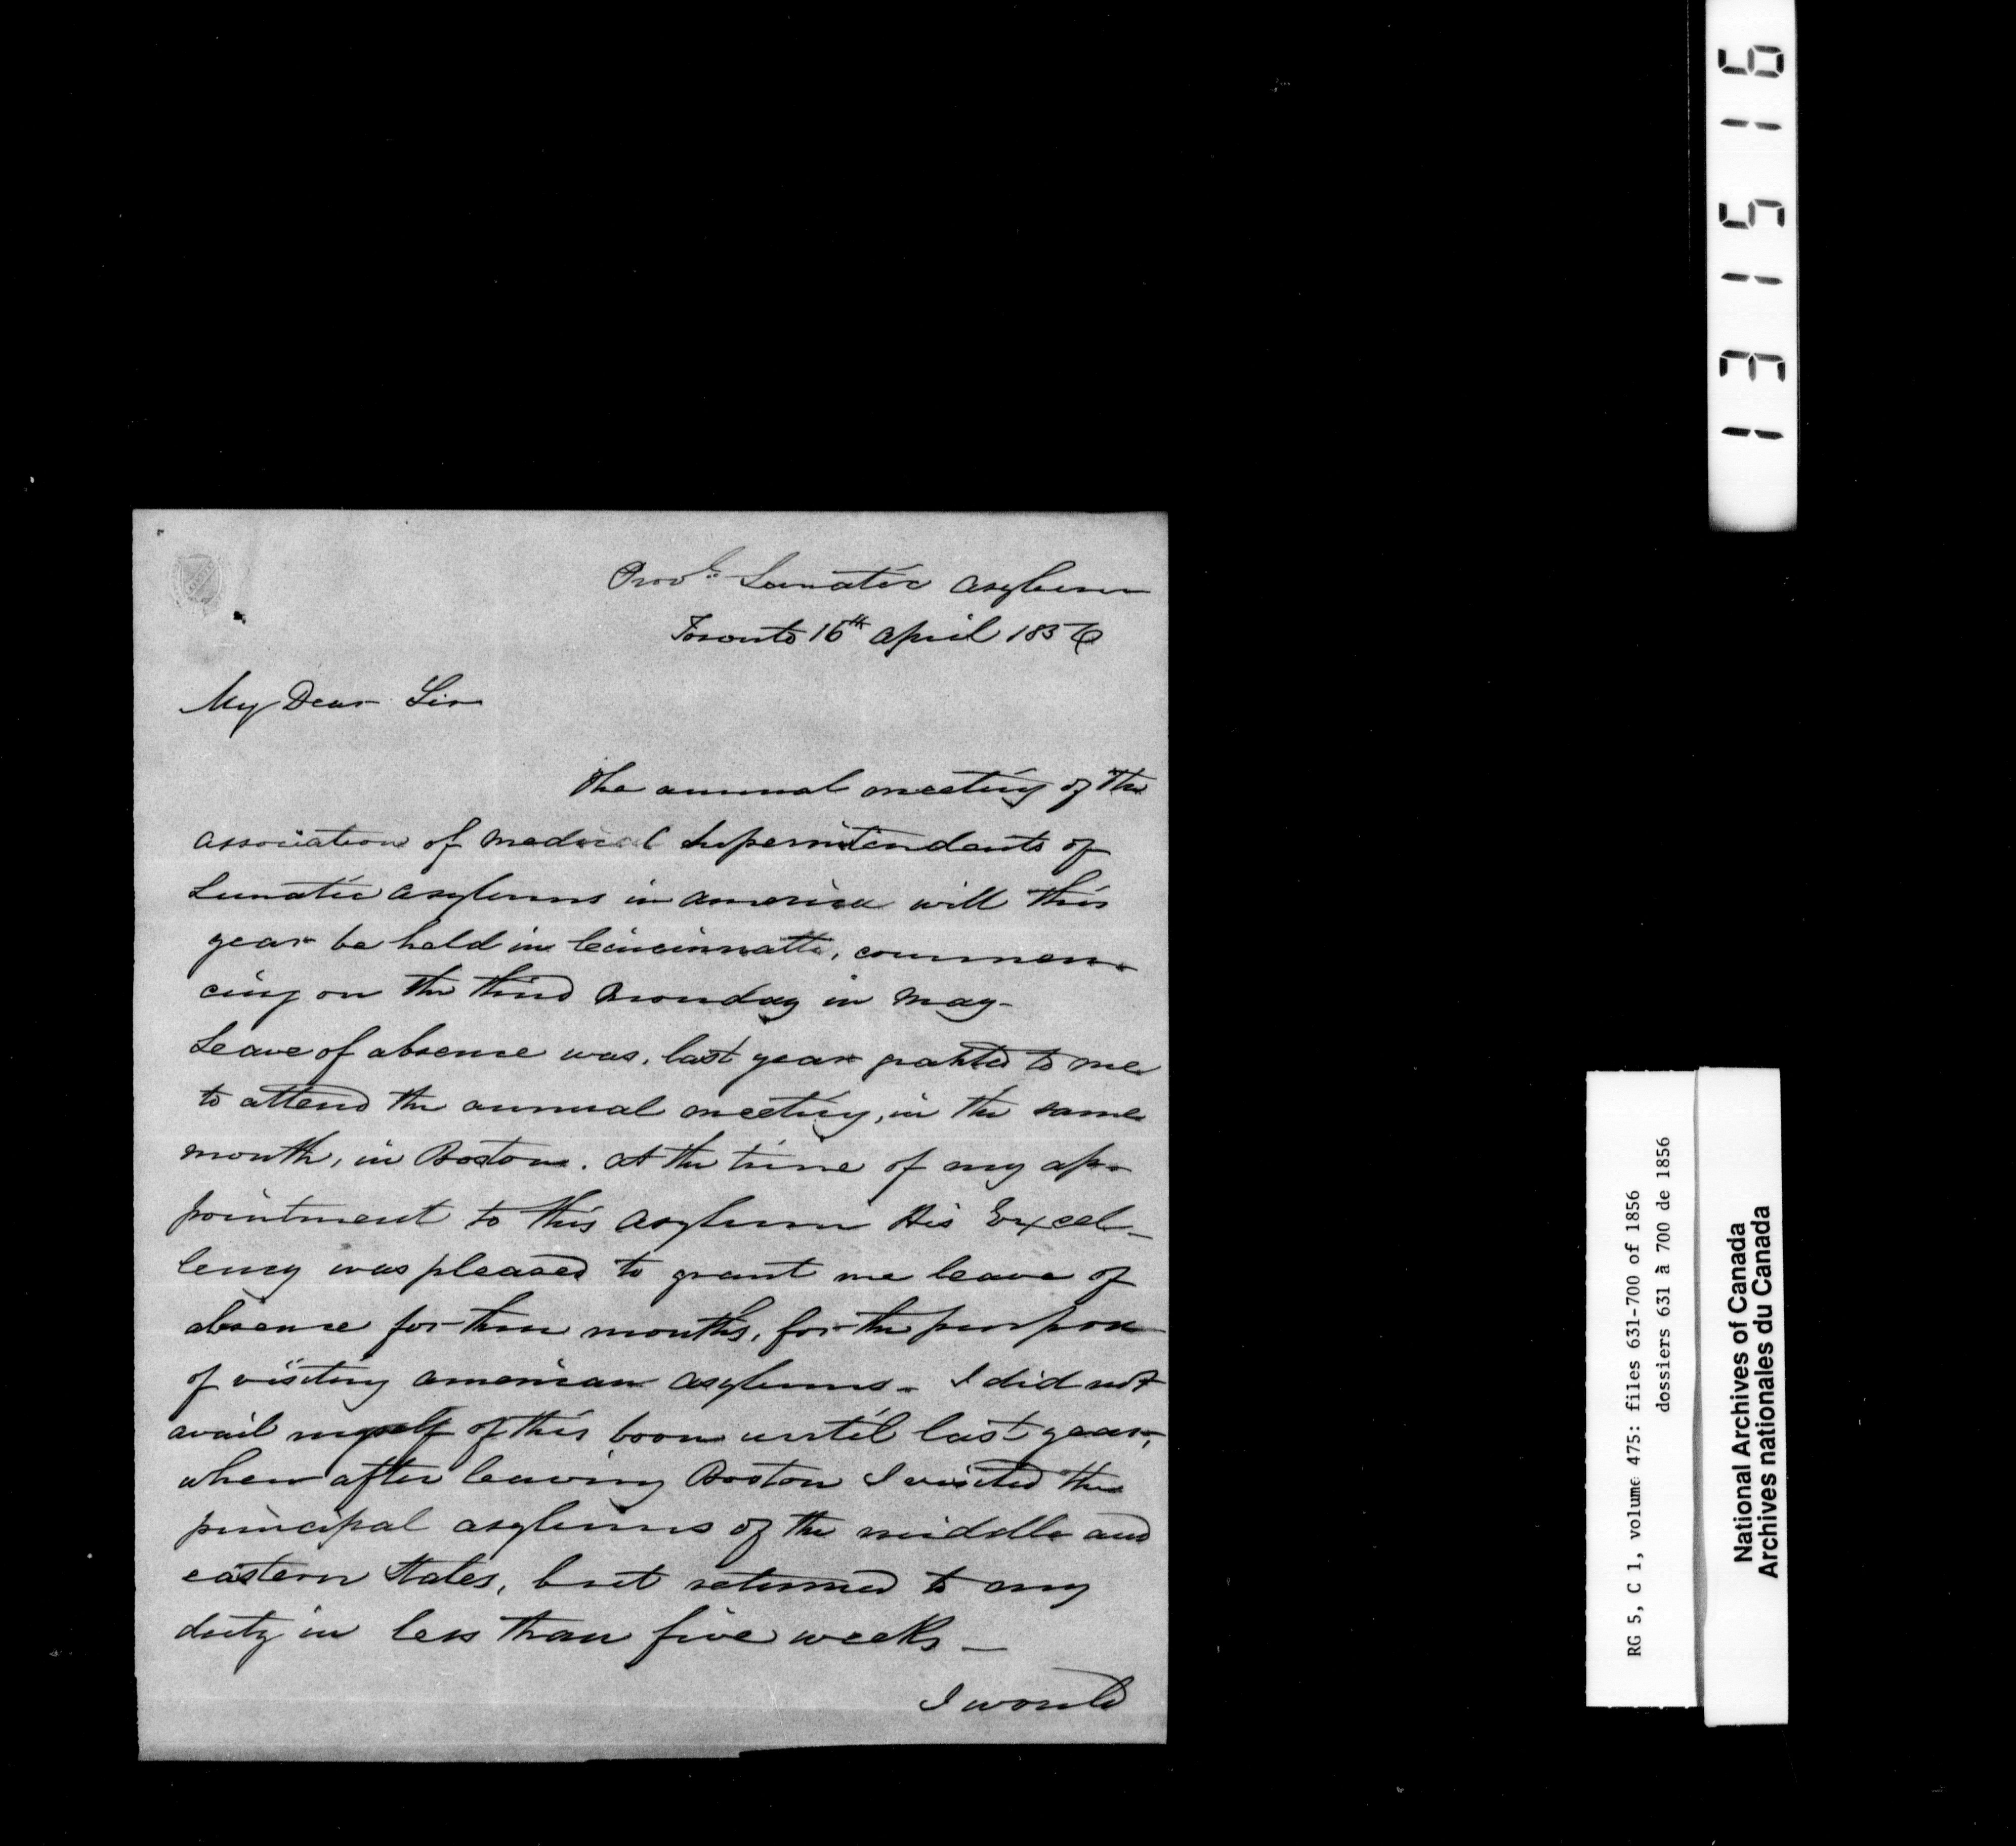 Provl. Lunatic Asylum
Toronto 16th April 1856
My Dear Sir
The annual meeting of the
association of medical Superintendents of
Lunatic Asylums in America will this
year be held in Cincinnatti, commen-
cing on the third Monday in May-
Leave of absence was, last year granted to me
to attend the annual meeting, in the same
month, in Boston. At the time of my ap-
pointment to this Asylum His Excel-
lency was pleased to grant me leave of
absence for three months, for the purpose
of visiting American Asylums - I did not
avail myself of this boon until last year,
when after leaving Boston I visited the
principal asylums of the middle and
eastern States, but returned to my
duty in less than five weeks -
I would
131516
RG 5, C 1, volume 475: files 631-700 of 1856
dossiers 631 à 700 de 1856
National Archives of Canada
Archives nationales du Canada